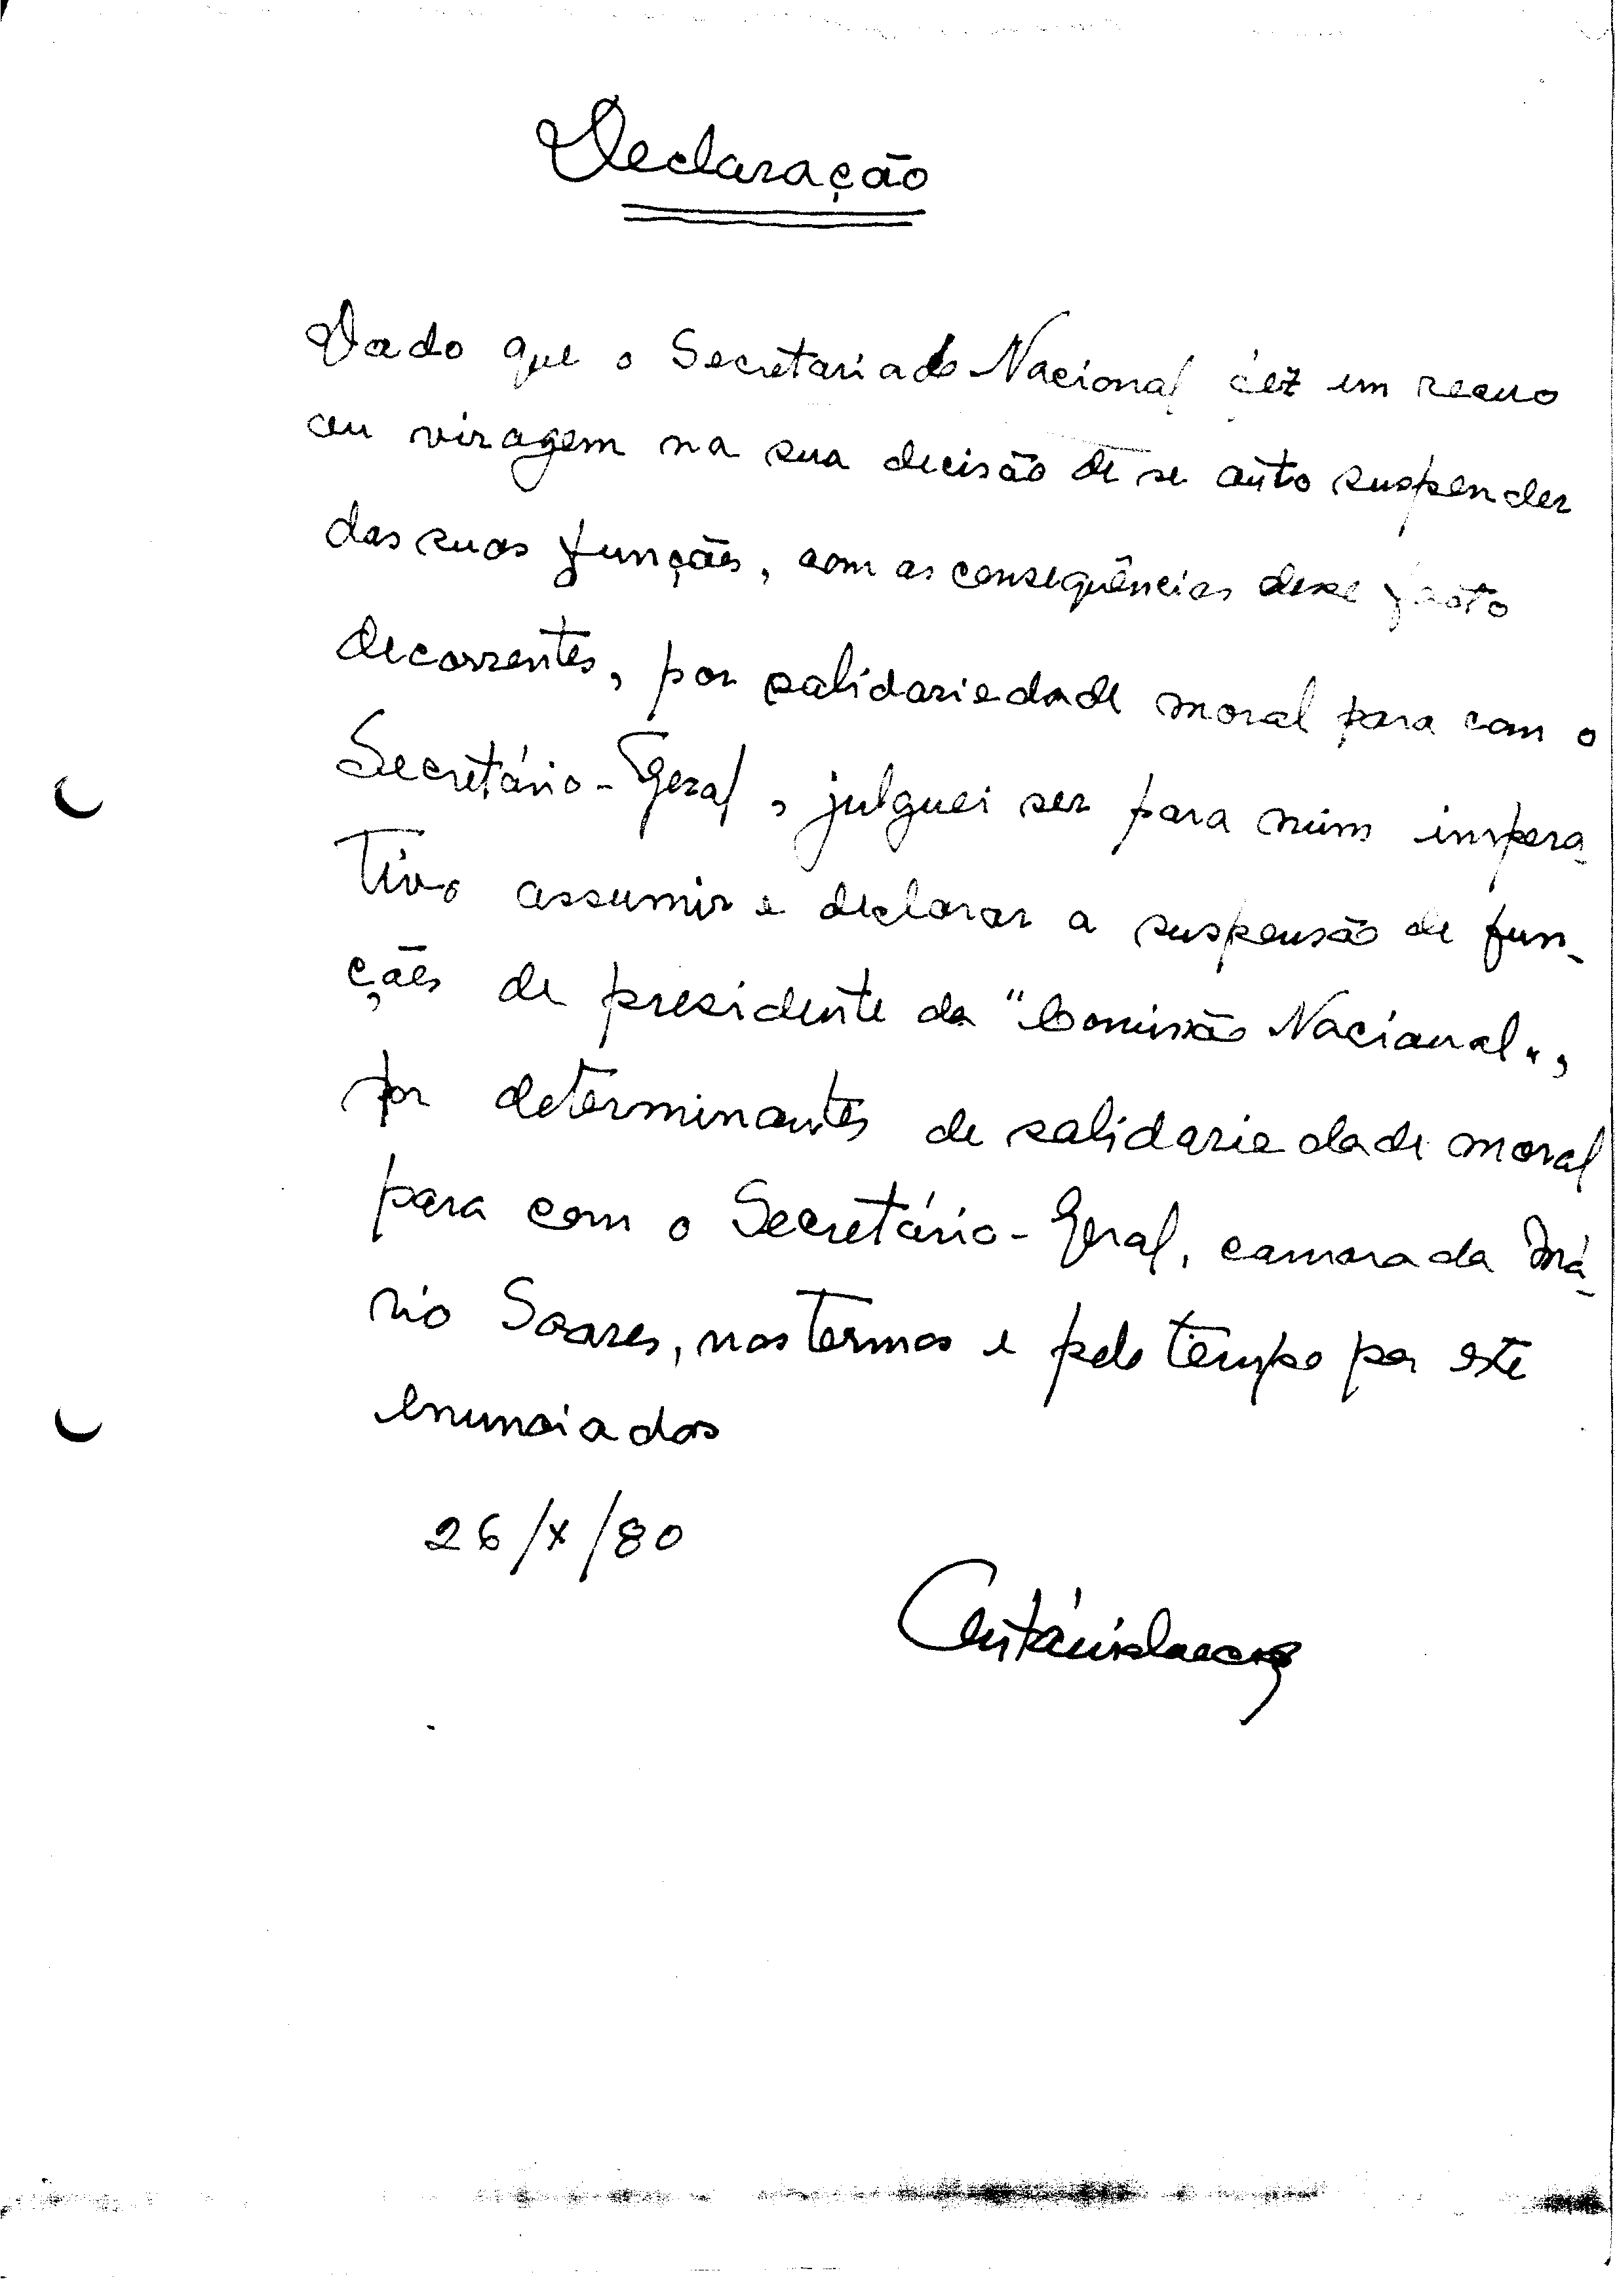 Declaração
Dado que o Secretariado Nacional fez um recuo
ou viragem na sua decisão de se auto suspender
das suas funções, com as consequências desse facto
decorrentes, por solidariedade moral para com o
Secretário-Geral, julguei ser para mim impera-
tivo assumir e declarar a suspensão de fun-
ções de presidente da "Comissão Nacional",
por determinantes de solidariedade moral
para com o Secretário-Geral, camarada Má-
rio Soares, nos termos e pelo tempo por este
enunciados
26/X/80